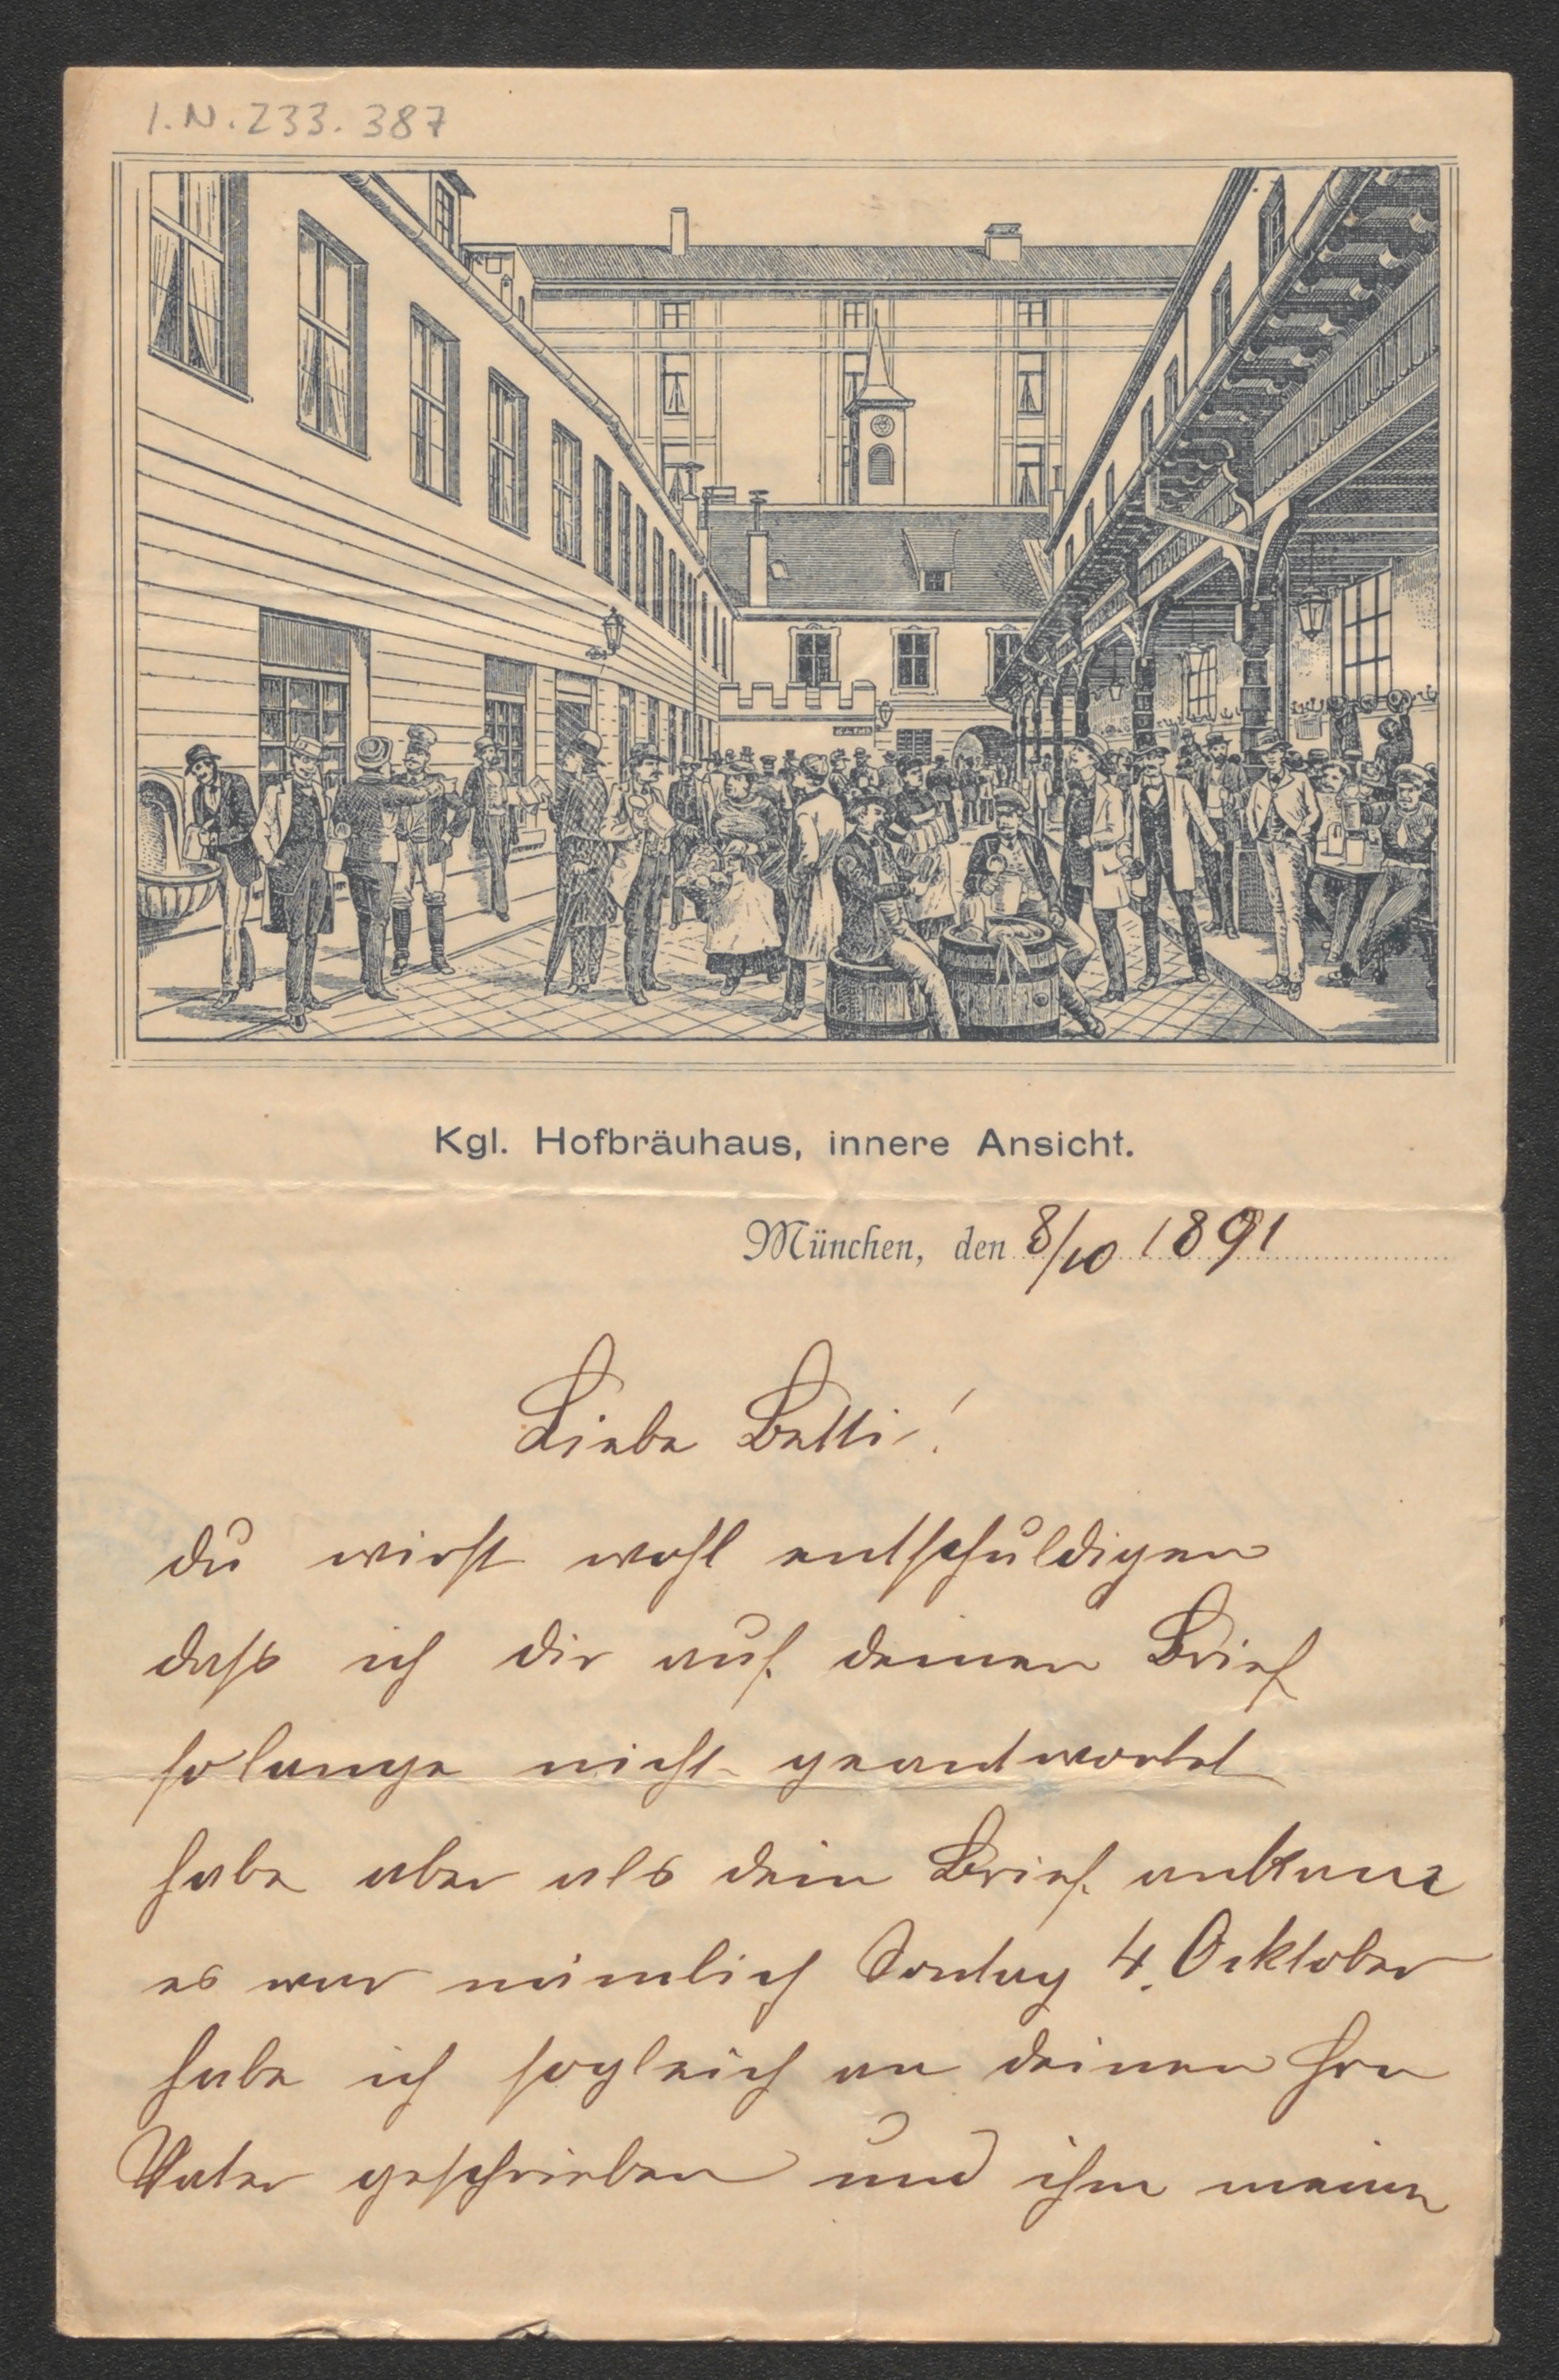 I.N. 233.387
Kgl. Hofbräuhaus, innere Ansicht.
München, den 8/10 1891
Liebe Betti!
du wirst wohl entschuldigen
dass ich dir auf deinen Brief
solange nicht geantwortet
habe aber als dein Brief ankam
es war nämlich Sontag 4. Ocktober
habe ich sogleich an deinen Hrn
Vater geschrieben und ihm meine